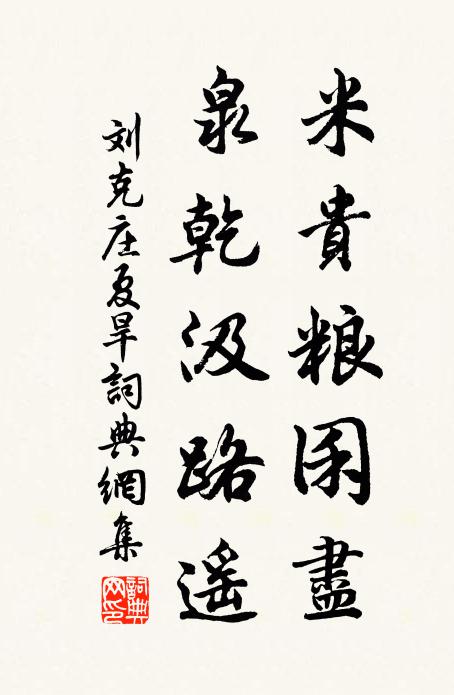 米貴粮囷盡
泉乾汲路遥
刘克庄夏旱詞典網集
詞典
网印